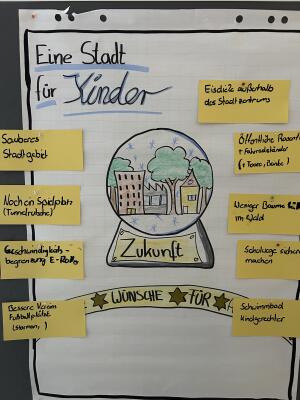 Eine Stadt
für Kinder
Eisdiele außerhalb
des Stadtzentrums
Sauberes
Stadtgebiet
Öffentliche
+ Fahrradständer
(+ Tore, Bänke)
Noch ein Spielplatz
(Tunnelrutsche)
Weniger Bäume
im Wald
Geschwindigkeits-
begrenzung E-Roller
Schulwege sicher
machen
Zukunft
WÜNSCHE FÜR
Bessere Vereine
Fußballplätze
Schwimmbad
kindgerechter